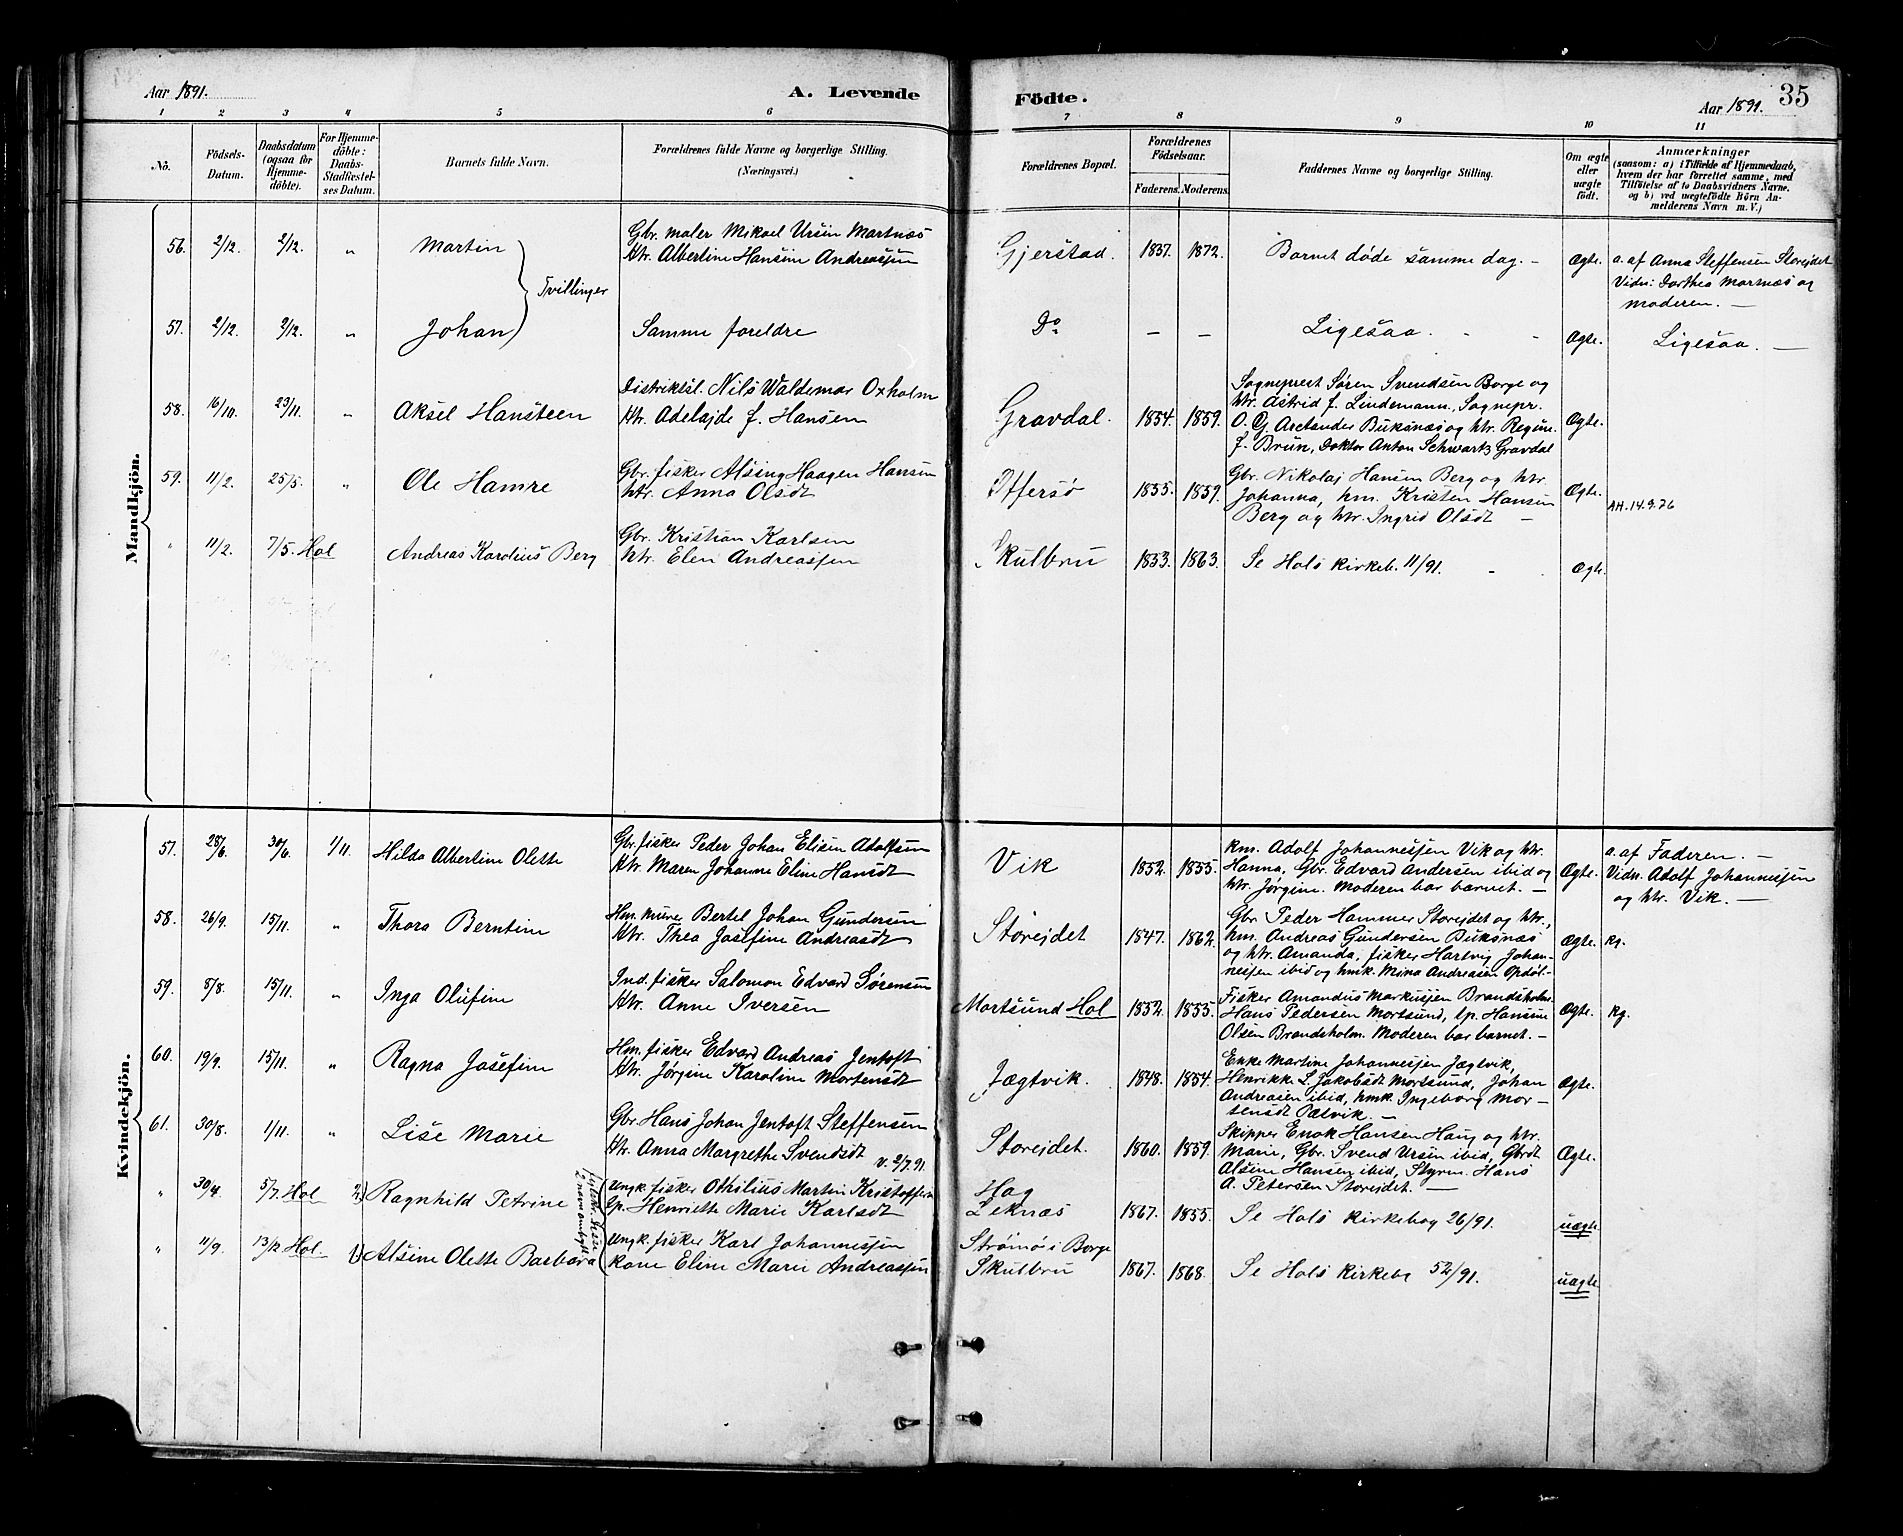 Aar 1891.
A. Levende
Födte.
Aar 1891.
35
1 2 3 4 5 6 7 8 9 10 11
No.
Födsels-Datum.
Daabsdatum (ogsaa for Hjemme-döbte).
For Hjemme-döbte: Daabs-Stadfæstel-ses Datum.
Barnets fulde Navn.
Forældrenes fulde Navne og borgerlige Stilling.
(Næringsvei.)
Forældrenes Bopæl.
Forældrenes Födselsaar.
Faderens. Moderens.
Faddernes Navne og borgerlige Stilling.
Om ægte eller uægte födt.
Anmærkninger
(saasom: a) i Tilfælde af Hjemmedaab, hvem der har forrettet samme, med Tilföielse af to Daabsvidners Navne. og b) ved uægtefödte Börn An-melderens Navn m. V.)
Mandkjön.
56. 2/12. 2/12. " Martin
Tvillinger
Gbr. maler Mikael Ursin Martnæs
Htr. Albertine Hansine Andreassen
Gjerstad. 1837. 1872. Barnet døde samme dag. - Ægte. a. af Anna Steffensen Storejdet
Vidn: Dorthea Martnæs og
moderen. —
57. 2/12. 2/12. " Johan Samme foreldre Do — — Ligesaa. - Ægte. Ligesaa. —
58. 16/10. 23/11. " Aksel Hansteen
Distriktsl. Nils Waldemar Oxholm
Htr. Adelajde f. Hansen
Gravdal. 1854. 1859.
Sogneprest Søren Svendsen Borge og
htr. Astrid f. Lindemann, Sognepr.
O. G. Arctander Buksnæs og htr. Regine
f. Brun, Doktor Anton Schwartz Gravdal
Ægte.
59. 11/2. 25/5. " Ole Hamre
Gbr. fisker Alsing Haagen Hansen
htr. Anna Olsdt
Offersø 1855. 1859.
Gbr. Nikolaj Hansen Berg og htr.
Johanna, hm. Kristen Hansen
Berg og htr. Ingrid Olsdt —
Ægte. AH. 14.9.76
" 11/2. 7/5. Hol Andreas Karolius Berg
Gbr. Kristian Karlsen
htr. Elen Andreassen
Skulbru 1853. 1863. Se Hols kirkeb. 11/91. - Ægte.
Kvindekjön.
57. 28/6. 30/6. 1/11. Hilda Albertine Olette
Gbr. fisker Peder Johan Elisen Adolfsen
Htr. Maren Johanne Eline Hansdt
Vik 1852. 1855.
km. Adolf Johannessen Vik og htr.
Hanna, Gbr. Edvard Andersen ibid og
htr. Jørgine. Moderen bar barnet. —
Ægte.
a. af Faderen. —
Vidn. Adolf Johannessen
og htr. Vik. —
58. 26/9. 15/11. " Thora Berntine
Hm. murer Bertel Johan Gundersen
Htr. Thea Josefine Andreasdt
Storejdet 1847. 1862.
Gbr. Peder Hammer Storejdet og htr.,
hm. Andreas Gundersen Buksnæs
og htr. Amanda, fisker Hartvig Johan-
nessen ibid og hmk. Mina Andreasen Opdøl-
Ægte. kg.
59. 8/8. 15/11. " Inga Olufine
Ind. fisker Salomon Edvard Sørensen
Htr. Anne Iversen
Mortsund Hol 1852. 1855.
Fisker Amandus Markussen Brandsholm.
Hans Pedersen Mortsund, tp. Hansine
Olsen Brandsholm. Moderen bar barnet. —
Ægte. kg.
60. 19/9. 15/11. " Ragna Josefine
Hm. fisker Edvard Andreas Jentoft
Htr. Jørgine Karoline Mortensdt
Jægtvik. 1848. 1854.
Enke Martine Johannessen Jægtvik,
Henrikke L. Jakobsdt Mortsund, Johan
Andreasen ibid, hmk. Ingeborg Mor-
tensdt Pætvik. —
Ægte.
61. 30/8. 1/11. " Lise Marie
Gbr. Hans Johan Jentoft Steffensen
Htr. Anna Margrethe Svendsdt
v. 2/7.91
Storejdet. 1860. 1859.
Skipper Enok Hansen Haug og htr.
Marie, Gbr. Svend Ursin ibid, Gbrdt
Alsine Hansen ibid, Styrm. Hans
A. Petersen Storejdet. —
Ægte.
" 30/4. 5/7. Hol 2) Ragnhild Petrine
Ungk. fisker Othilius Martin Kristoffers
Gp. Henriette Marie Karlsdt
Hag
Leknæs 1867. 1855. Se Hols kirkebog 26/91. uægte
" 11/9. 13/12 Hol 1) Alsine Olette Barbara
Ungk. fisker Karl Johannessen
kone Eline Marie Andreassen
Strømø i Borge
Skulbru 1867. 1868. Se Hols kirkebg 52/91. uægte